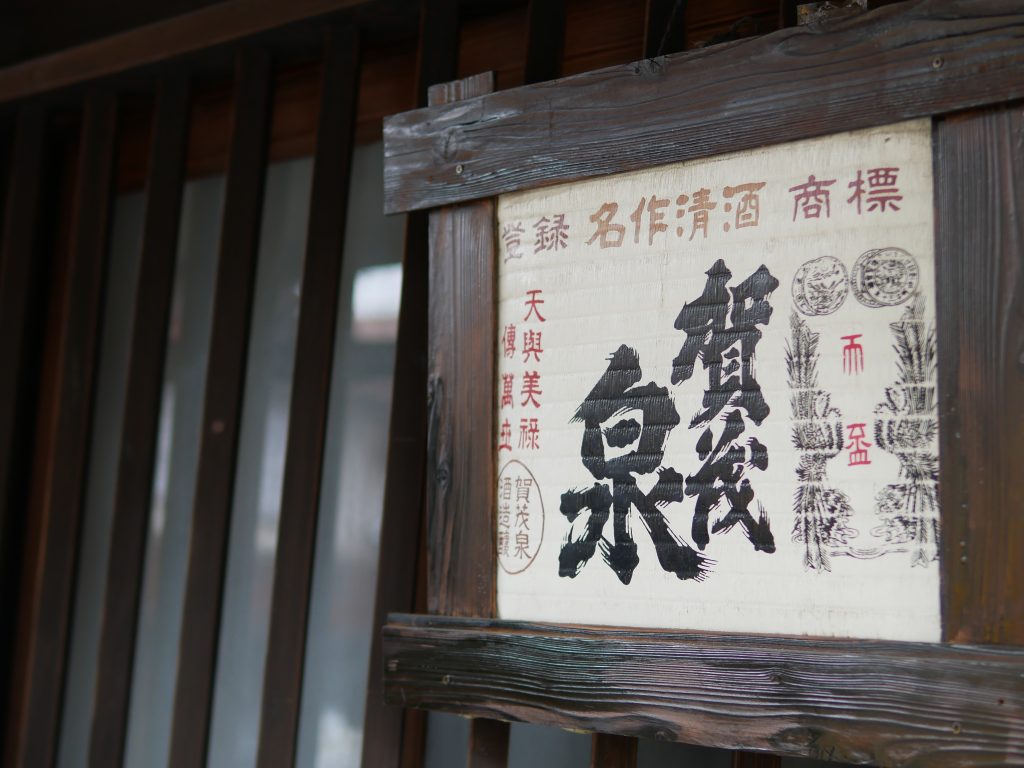 登録 名作清酒 商標
盃
賀茂
泉
天與美禄
傳萬世
賀茂泉
酒造醸